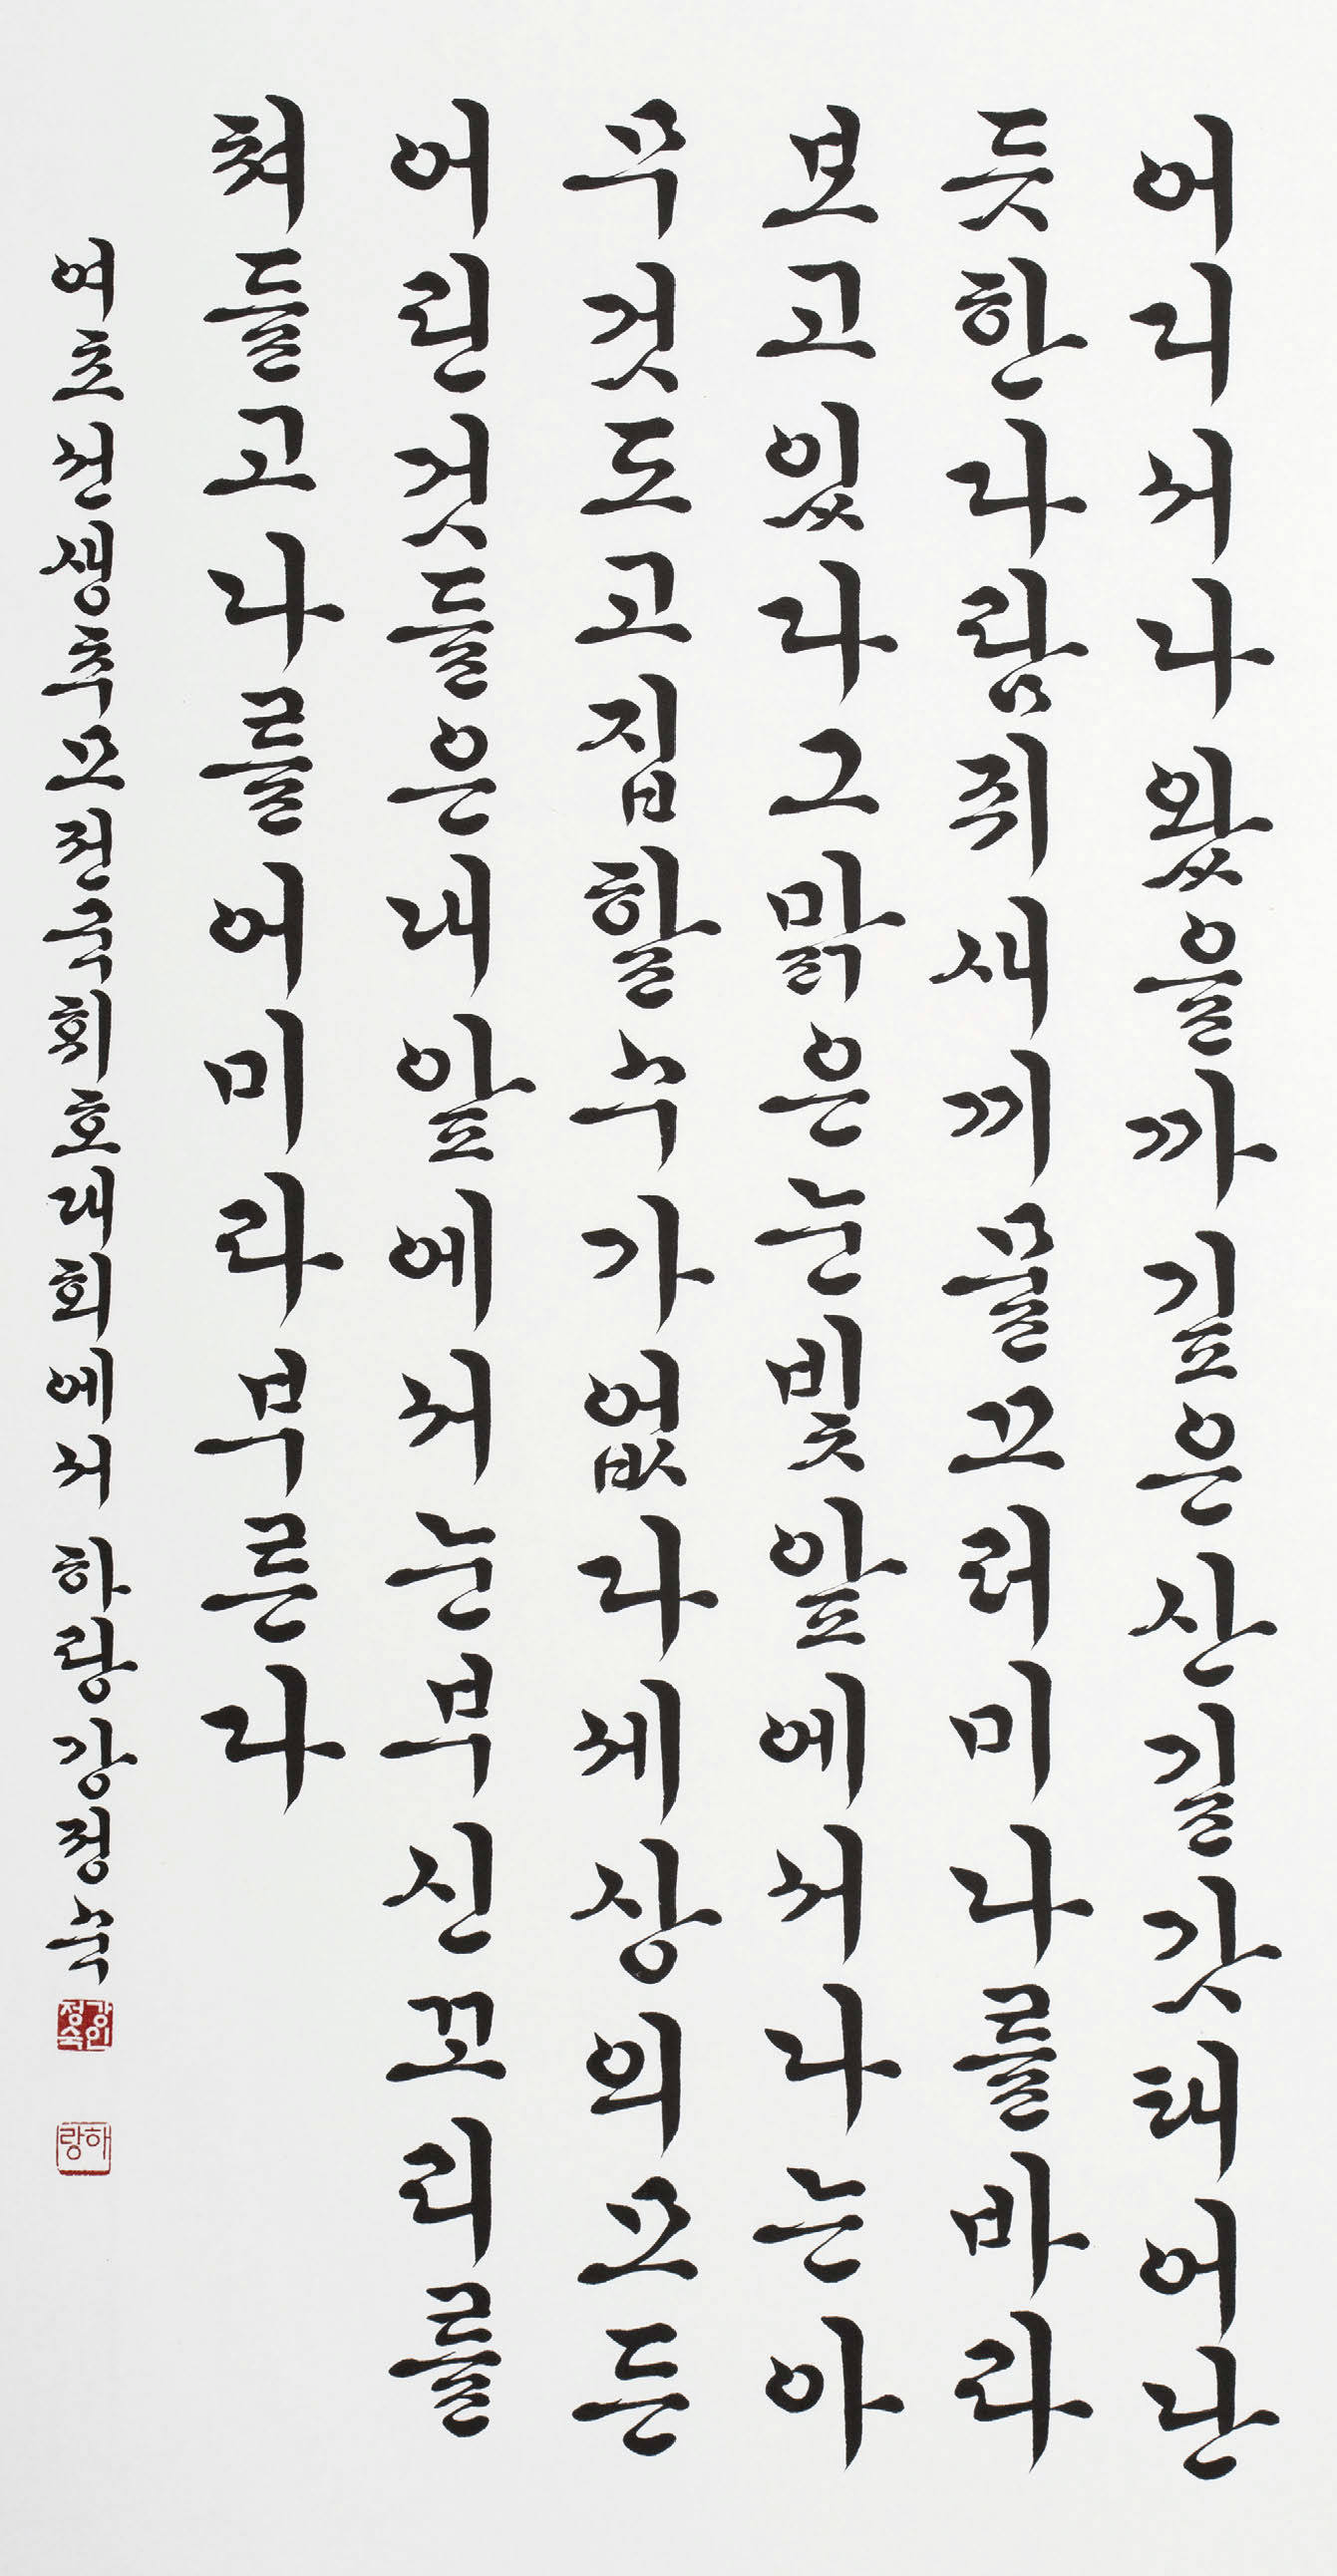 어디서나왔을까깊은산길갓태어난
듯한다람쥐새끼물끄러미나를바라
보고있다그맑은눈빛앞에서나는아
무것도고집할수가없다세상의모든
어린것들은내앞에서눈부신꼬리를
쳐들고나를어미라부른다
여초선생추모전국휘호대회에서 하랑강정숙
강인정숙
하랑